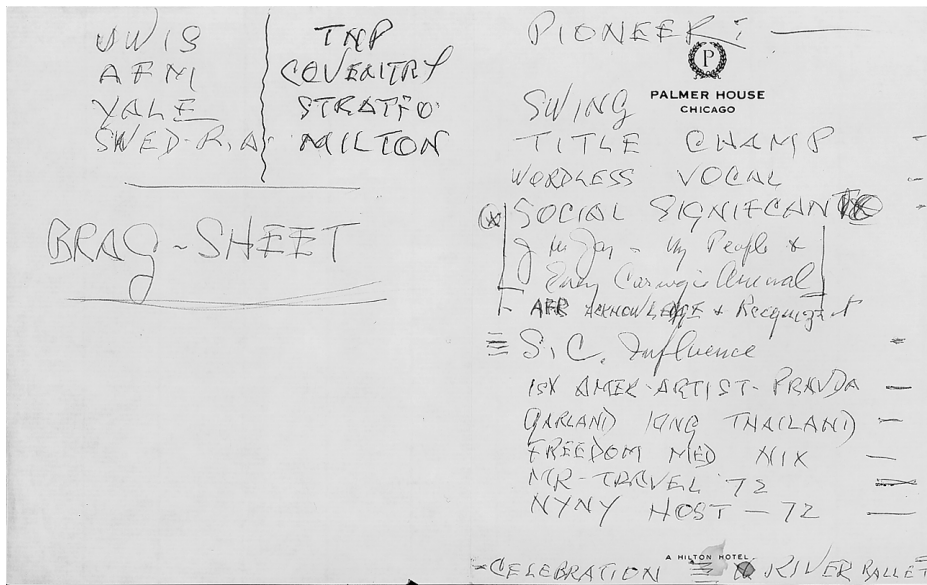 UWIS
AFM
YALE
SWED-R.A
TNP
COVENTRY
STRATFO
MILTON
BRAG-SHEET
PIONEER:
P
PALMER HOUSE
CHICAGO
SWING
TITLE CHAMP
WORDLESS VOCAL
SOCIAL SIGNIFICANT
My People &
Every Carnegie Annual
AFR ACKNOWLEDGE &
S.C. Influence
1st AMER-ARTIST-PRAVDA
GARLAND KING THAILAND
FREEDOM MED NIX
MR-TRAVEL 72
NYNY HOST - 72
A HILTON HOTEL
-CELEBRATION RIVER BALLET